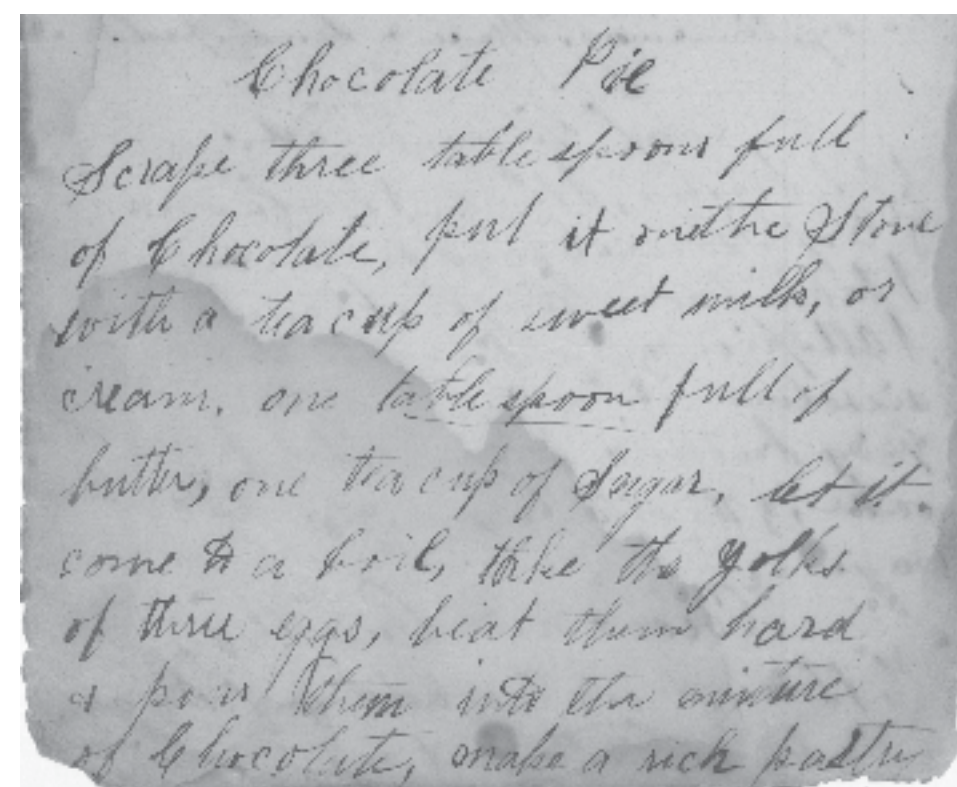 Chocolate Pie
Scrape three table spoons full
of Chocolate, put it on the Stove
with a tea cup of sweet milk, or
cream, one table spoon full of
butter, one tea cup of Sugar, let it
come to a boil, take the yolks
of three eggs, beat them hard
& pour them into the mixture
of Chocolate, make a rich pastry